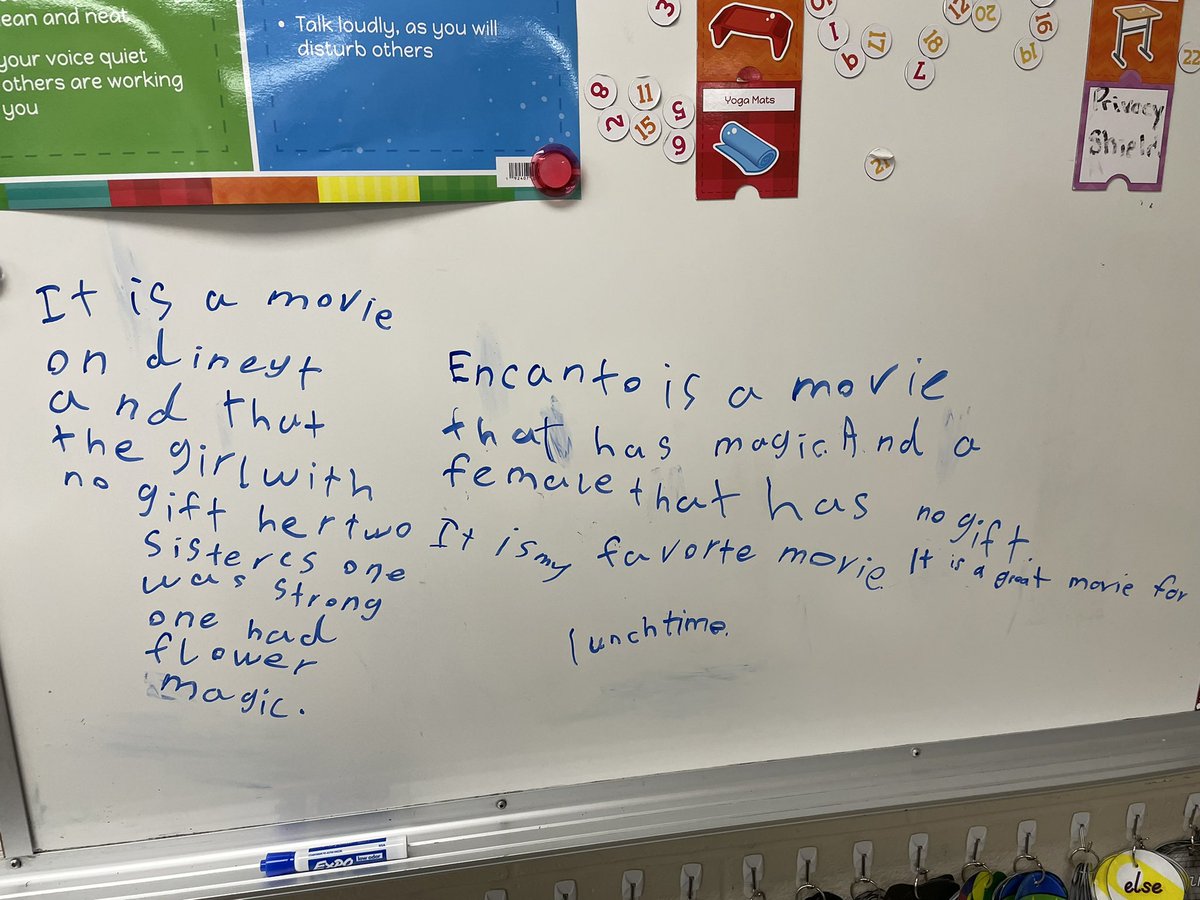 ean and neat
your voice quiet
others are working
you
• Talk loudly, as you will
disturb others
3
8
11
5
2
15
6
Yoga Mats
1
9
17
18
7
12
20
16
19
22
Privacy
Shield
It is a movie
on dineyt
and that
the girl with
no gift her two
Sisteres one
was strong
one had
flower
magic.
Encanto is a movie
that has magic. And a
female that has no gift.
It is my favorte movie. It is a great movie for
lunchtime.
EXPO
else